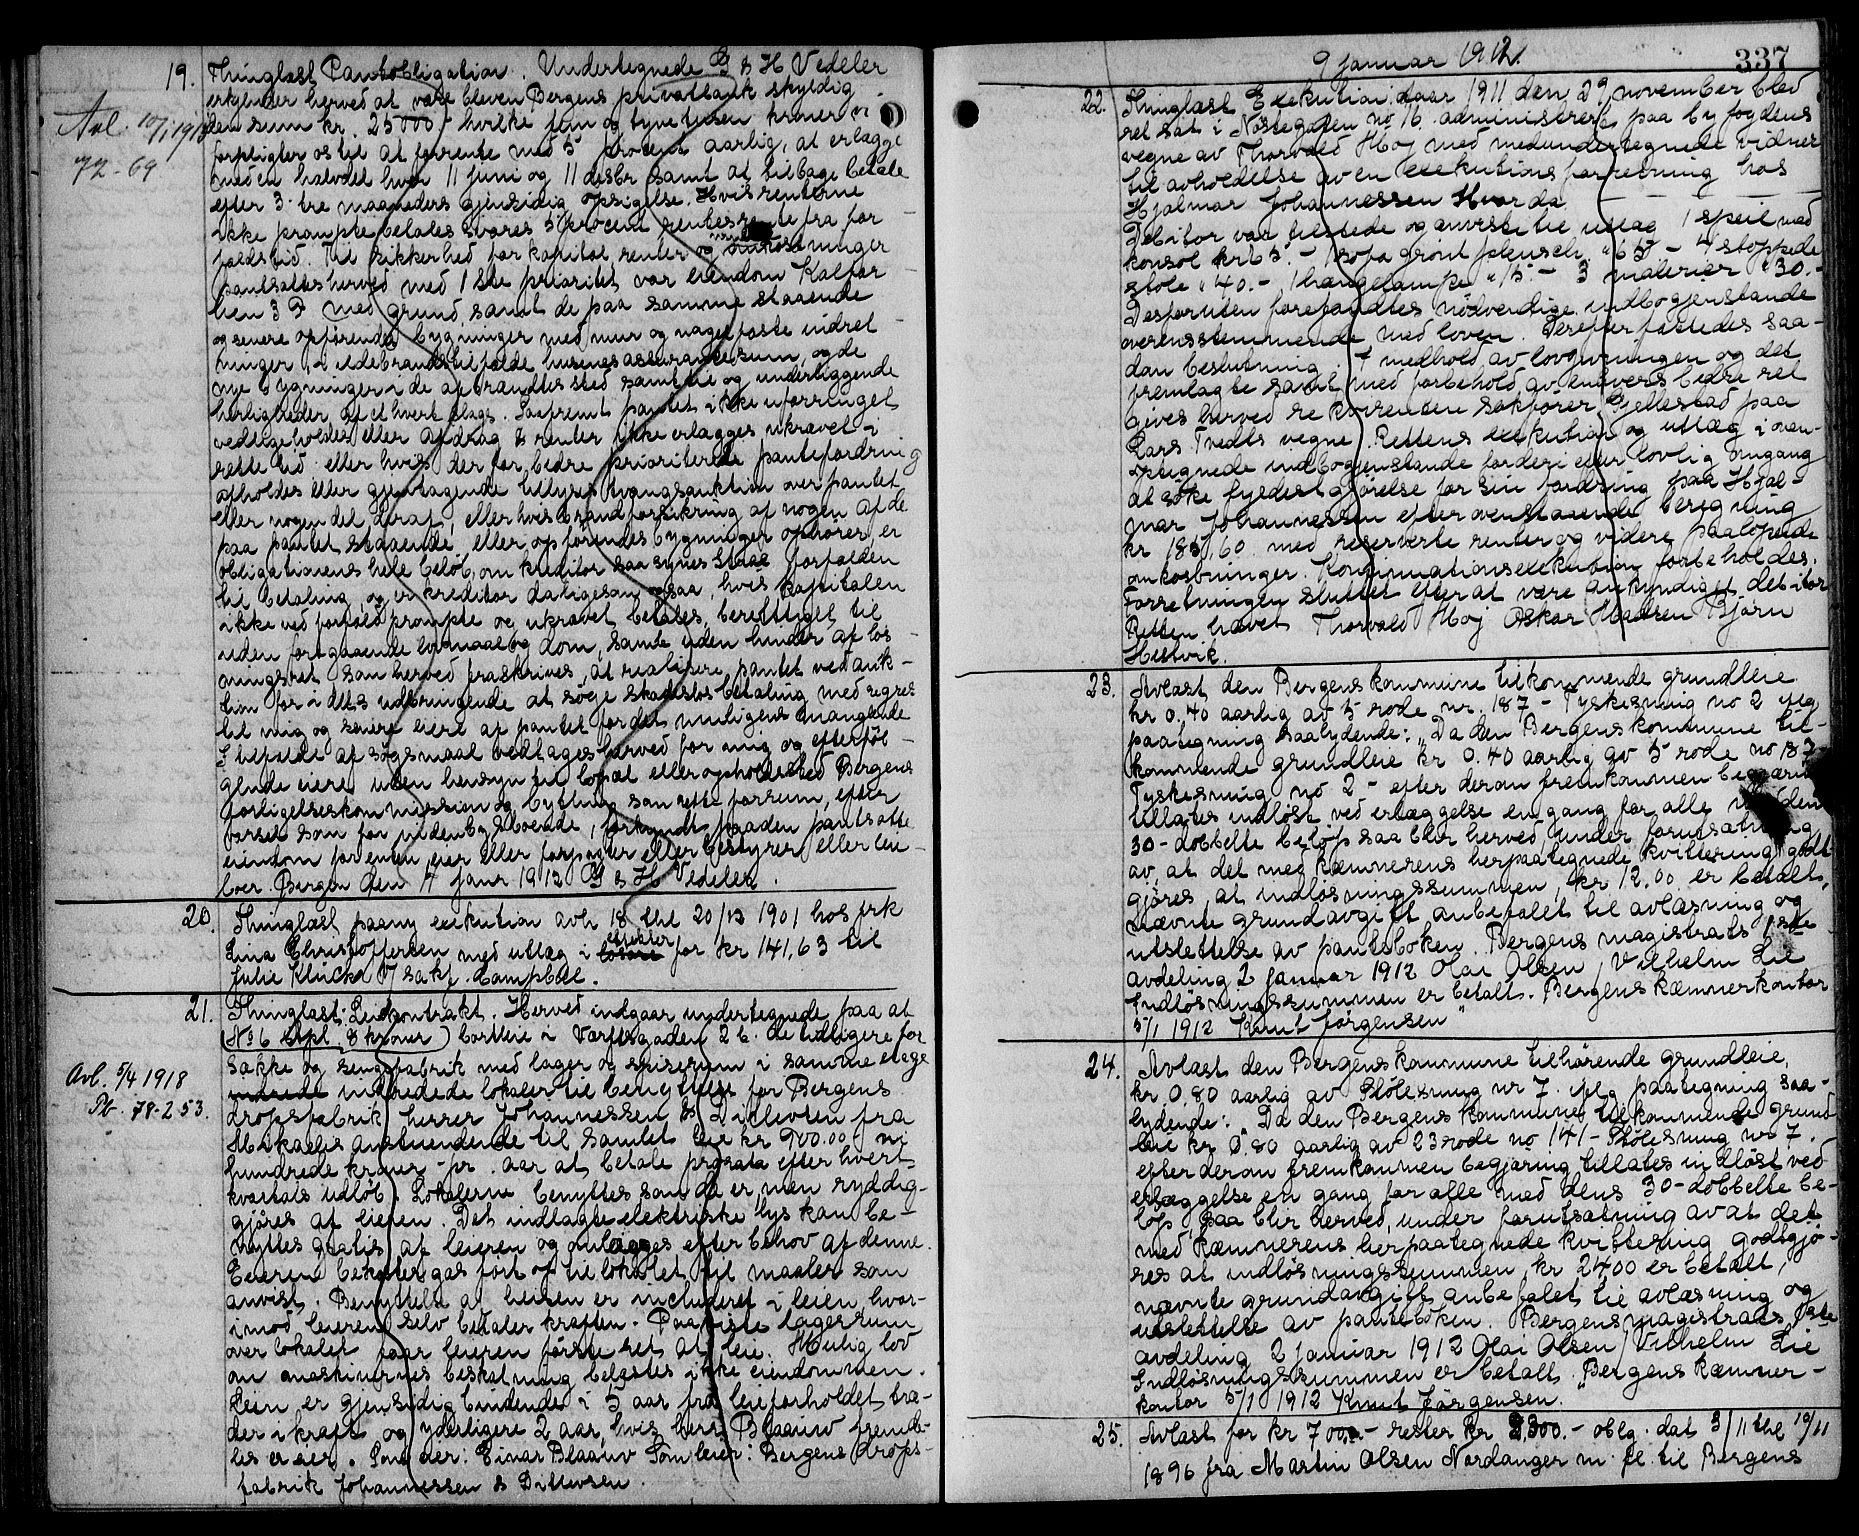 19. Thinglæst Pantobligation. Undertegnede G & H Vedeler
erkjender herved at være bleven Bergens privatbank skyldig
den sum kr. 25000 - hvilke fem og tyvetusen kroner vi
forpligter os til at forrente med 5 procent aarlig, at erlægge
med en halvdel hver 11 juni og 11 desbr samt at tilbage betale
efter 3 - tre maaneders gjensidig opsigelse. Hvis renterne
ikke prompte betales svares 5 procent rentesrente fra for
faldstid. Til sikkerhed for kapital, renter og omkostninger
pantsættes herved med 1ste prioritet vor eiendom Kalfar
vien 3 F med grund samt de paa samme staaende
og senere opførendes bygninger med mur og nagelfaste indret
ninger, i ildebrandstilfælde husenes assurancesum, og de
nye bygninger i de afbrændtes sted samt til og underliggende
herligheder af et hvert slags. Saafremt pantet ikke uforringet
vedligeholdes eller afdrag & renter ikke erlægges ukrævet i
rette tid eller hvis der for bedre prioriterede pantefordring
afholdes eller gjentagende tillyses tvangsauktion over pantet
eller nogen del deraf, eller hvis brandforsikring af nogen af de
paa pantet staaende eller opførendes bygninger ophører, er
obligationens hele beløb, om kreditor saa synes straks forfalden
til betaling, og er kreditor da ligesom ogsaa, hvis kapitalen
ikke ved forfald prompte og ukrævet betales, berettiget til
uden foregaaende lovmaal og dom, samt uden hinder af løs
ningsret som herved fraskrives, at realisere pantet ved auk-
tion for i dets udbringende at søge skadesløs betaling med regres
til mig og senere eiere af pantet for det muligens manglende
I tilfælde af søgsmaal vedtages herved for mig og efterføl-
gende eiere uden hensyn til bopæl eller opholdssted Bergens
forligelseskommission og byting som rette forum, efter
varsel som for indenbys boende, forkyndt paa den pantsatte
eiendom for enten eier eller forpagter eller bestyrer eller lei-
boer. Bergen den 4 januar 1912 G & H Vedeler.
Avl. 10/1 1913
72 - 69
20. Thinglæst paany exekution avh 18 thl 20/12 1901 hos frk
Lina Christoffersen med utlæg i løsøre effekter for kr 141,63 til
Julie Klück v/ sakf. Campbell.
21. Thinglæst Leiekontrakt. Herved indgaar undertegnede paa at
(No 6 stpl. 8 kroner) bortleie i Værftsgaden 2 b. de tidligere for
Sække og sengefabrik med lager og spiserum i samme etage
indredede lokaler til benyttelse for Bergens
dropsfabrik herrer Johannessen & Ditlevsen fra
Mikaelis anstundende til samlet leie kr 900.00 ni
hundrede kroner - pr. aar at betale prorata efter hvert
kvartals udløb. Lokalerne benyttes som de er men ryddig-
gjøres af leieren. Det indlagte elektriske lys kan be-
nyttes gratis af leieren og omlægges efter behov af denne.
Eieren bekoster gas ført op til lokalet til maaler som
anvist. Benyttelse af heisen er includeret i leien, hvor-
imod leieren selv betaler kraften. Paa siste lagerrum
over lokalet faar leieren første ret at leie. Mulig lov
om maskinernes beskatning belastes ikke eiendommen.
Leien er gjensidig bindende i 5 aar fra leieforholdet træ-
der i kraft og yderligere 2 aar hvis herr Blaauw fremde-
les er eier. Som eier: Einar Blaauw Som leier: Bergens drops-
fabrik Johannessen & Ditlevsen.
Avl. 5/4 1918
Pb. 78-253.
9 januar 1912.
337
22. Thinglæst Exekution. Aar 1911 den 29 november blev
ret sat i Nøstegaten no 16 administrert paa byfogdens
vegne av Thorvald Høj med medundertegnede vidner
til avholdelse av en exekutionsforretning hos
Hjalmar Johannessen Hvarda
Debitor var tilstede og anviste til utlæg 1 speil med
konsol kr 65.- 1 sofa grønt pleusch. " 65 - 4 stoppede
stole " 40.- 1 hængelampe " 15.- 3 malerier " 30.-
Desforuten forefandtes nødvendige indbogjenstande
overensstemmende med loven. Derefter fattedes saa-
dan beslutning: I medhold av lovgivningen og det
fremlagte samt med forbehold av enhvers bedre ret
gives herved rekvirenten sakfører Gjellestad paa
Lars Tvedts vegne Rettens exekution og utlæg i oven-
tegnede indbogjenstande forderi efter lovlig omgang
at søke fyldestgjørelse for sin fordring paa Hjal-
mar Johannessen efter ovenstaaende beregning
kr 185,60 med reserverte renter og videre paaløpende
omkostninger. Kontinuationsexekution forbeholdes.
Forretningen sluttet efter at være ankyndiget debitor
Retten hævet Thorvald Høj Oskar Hansen Bjørn
Hestvik.
23. Avlæst den Bergens kommune tilkommende grundleie
kr 0,40 aarlig av 5 rode nr. 187 - Tyskesmug no 2 iflg
paategning saalydende: "Da den Bergens kommune til-
kommende grundleie kr 0.40 aarlig av 5 rode no 187
Tyskesmug no 2 - efter derom fremkommen begjæring
tillates indløst ved erlæggelse en gang for alle med den
30-dobbelte beløp saa blir herved, under forutsætning
av, at det med kæmnerens herpaategnede kvittering godt
gjøres, at indløsningssummen, kr 12.00 er betalt,
nævnte grundavgift anbefalet til avlæsning og
utslettelse av panteboken. Bergens magistrats 1ste
avdeling 2 januar 1912 Olai Olsen / Vilhelm Lie
Indløsningssummen er betalt. Bergens kæmnerkontor
5/1 1912 Knut Jørgensen"
24. Avlæst den Bergens kommune tilhørende grundleie,
kr 0,80 aarlig av Stølesmug nr 7. iflg paategning saa-
lydende: "Da den Bergens kommune tilkommende grund
leie kr 0.80 aarlig av 23 rode no 141 - Stølesmug nr 7.
efter derom fremkommen begjæring tillates indløst ved
erlæggelse en gang for alle med dens 30-dobbelte be-
løp saa blir herved, under forutsætning av at det
med kæmnerens herpaategnede kvittering godtgjø-
res at indløsningssummen, kr 24.00 er betalt,
nævnte grundavgift anbefalet til avlæsning og
utslettelse av panteboken. Bergens magistrats 1ste
avdeling 2 januar 1912 Olai Olsen / Vilhelm Lie
Indløsningssummen er betalt. "Bergens kæmner-
kontor 5/1 1912 Knut Jørgensen.
25. Avlæst for kr 7000.- rester kr 2,300.- oblg. dat 3/11 thl 19/11
1896 fra Martin Olsen Nordanger m. fl. til Bergens